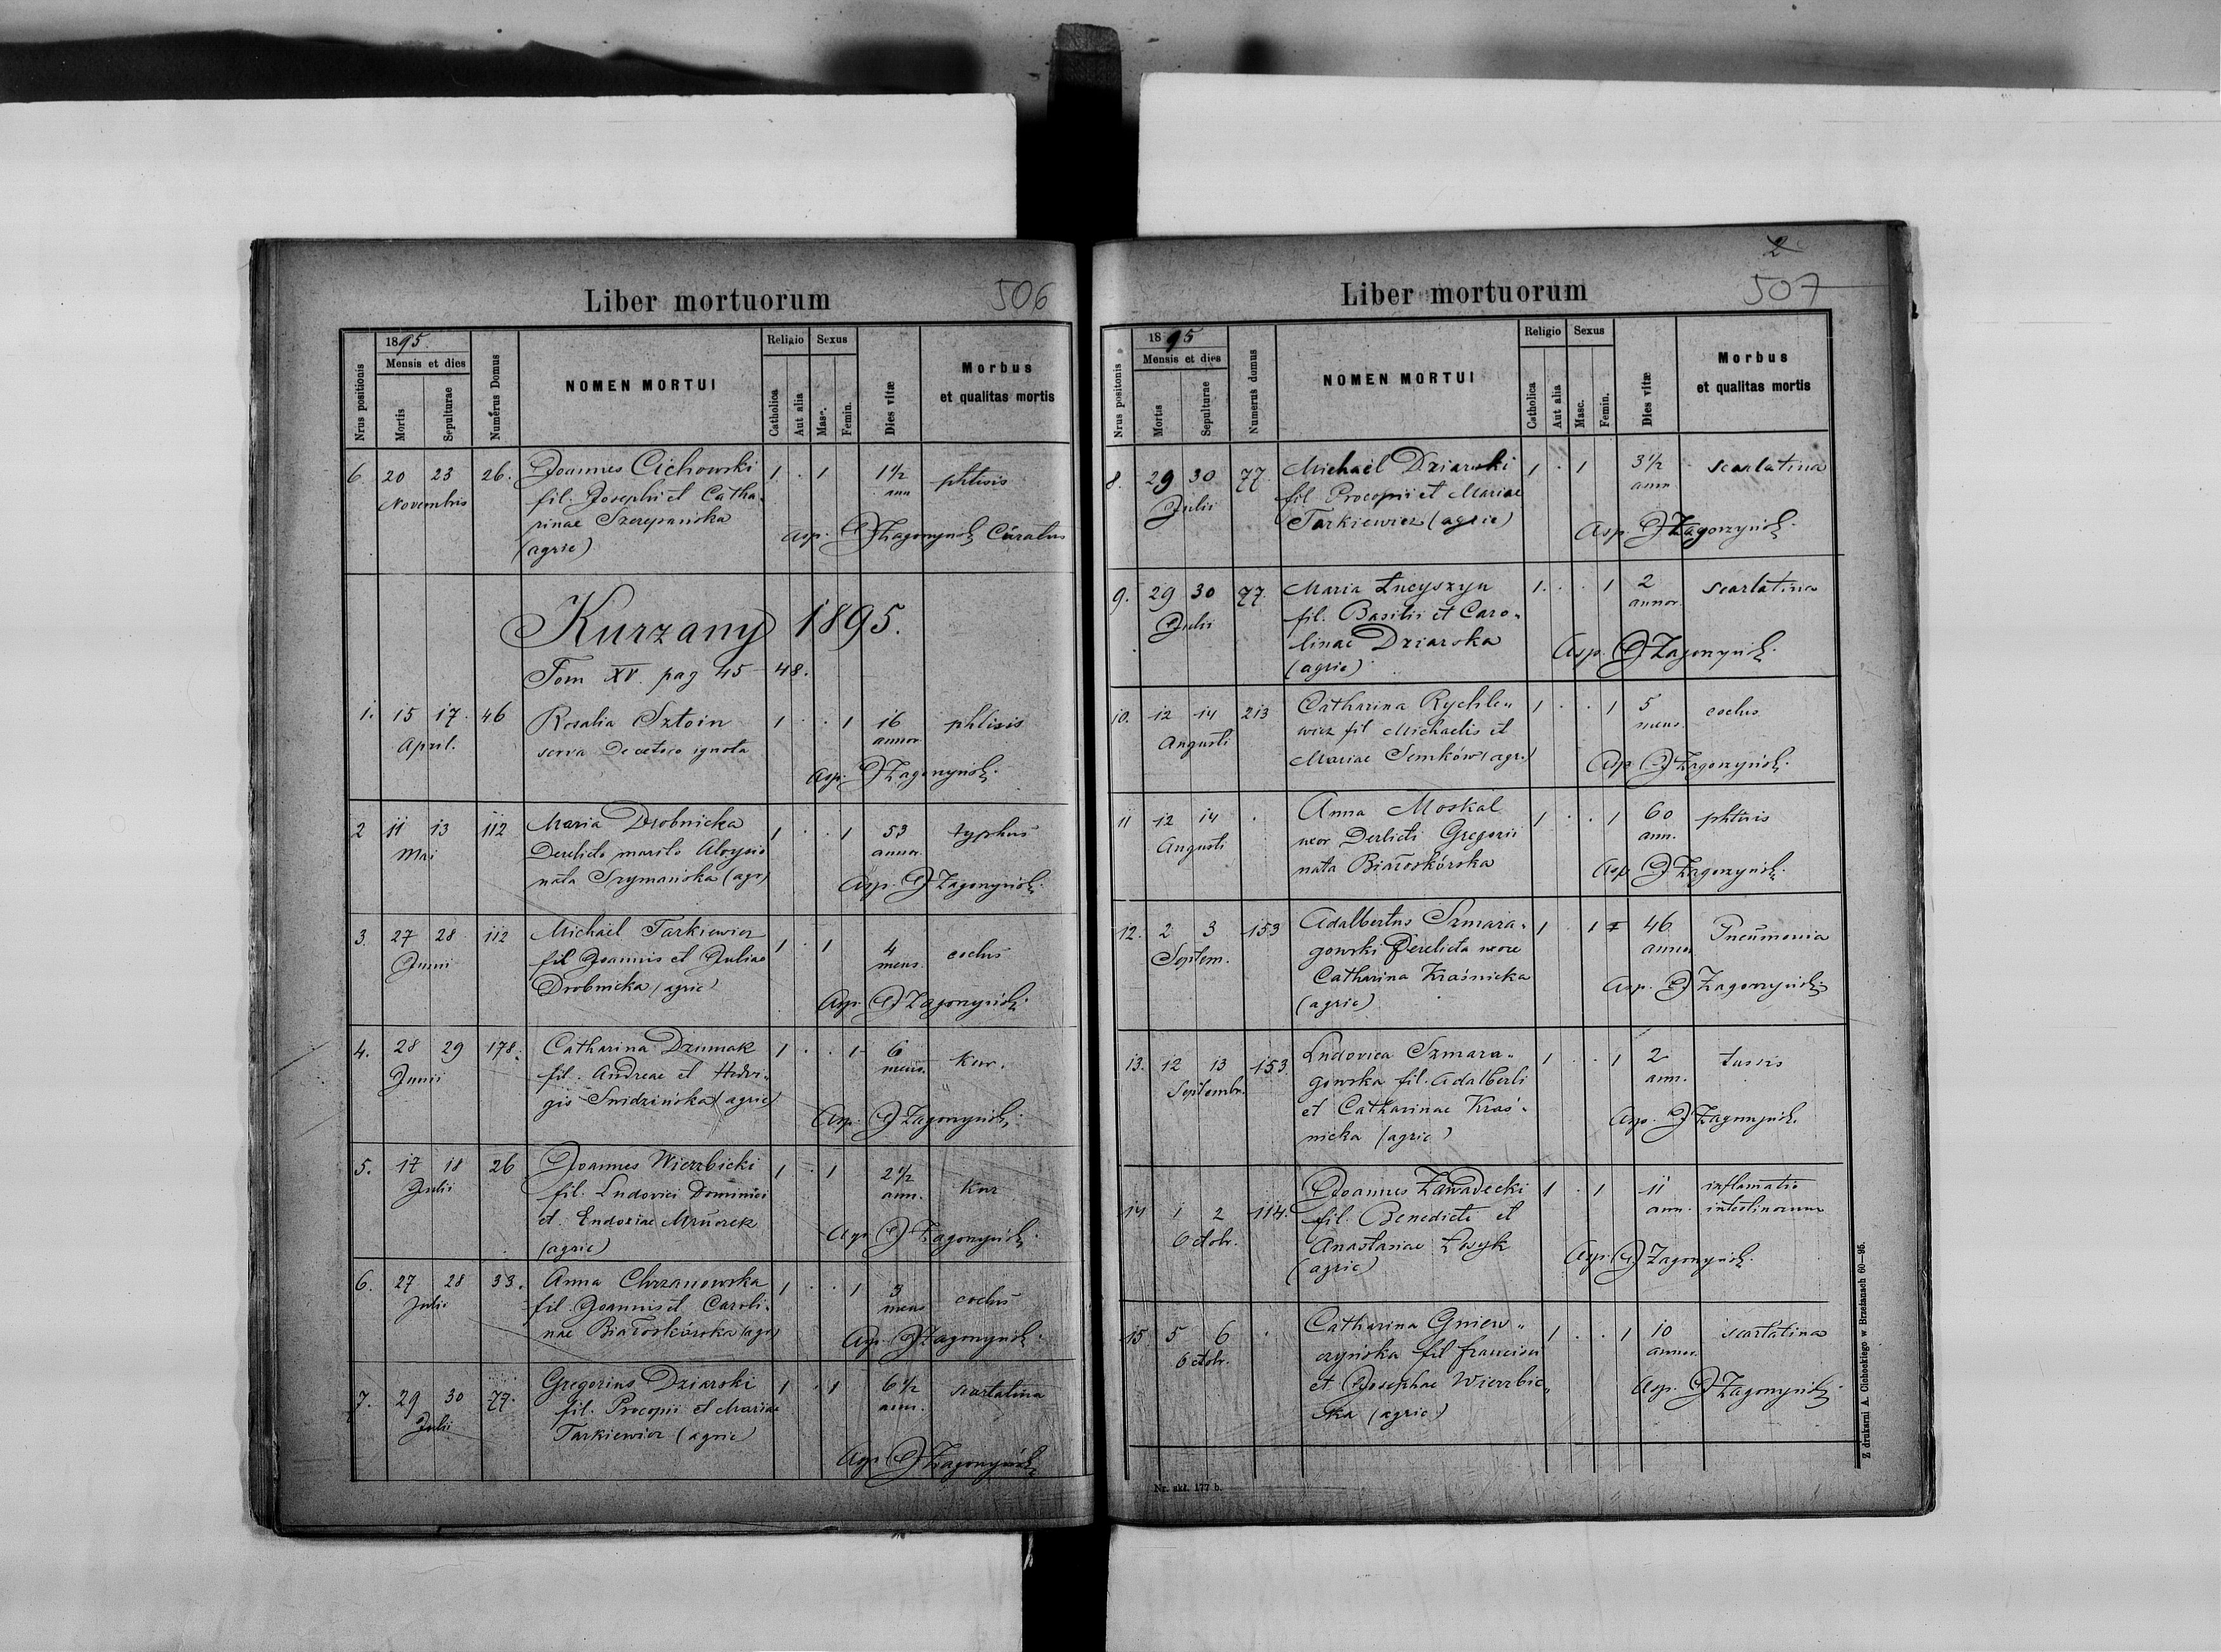 Liber mortuorum
506
Nrus positionis
1895.
Mensis et dies
Mortis
Sepulturae
Numerus Domus
NOMEN MORTUI
Religio
Catholica
Aut alia
Sexus
Masc.
Femin.
Dies vitæ
Morbus
et qualitas mortis
6. 20 23 26. Joannes Cichowski 1 . 1 1½ phtisis
Novembris fil. Josephi et Catha- ann
rinae Szczepańska
(agric) Asp. Zagórzyński Curatus
Kurzany 1895.
Tom XV. pag 45-48.
1. 15 17. 46 Rosalia Sztoin 1 . . 1 16 phtisis
April. serva De cetero ignota annor.
Asp. J Zagórzyński
2 11 13 112 Maria Drobnicka 1 . . 1 53 typhus
Mai Derelicto marito Aloysio annor.
nata Szymańska (agr)
Asp. J Zagórzyński
3. 27 28 112 Michael Tarkiewicz 1 . 1 4 eclus
Junii fil Joannis et Juliae mens.
Drobnicka (agric)
Asp. J Zagórzyński
4. 28 29 178. Catharina Dziumak 1 . . 1 6 Kur.
Junii fil. Andreae et Hedvi- mens.
gis Snidzińska (agric)
Asp. J Zagórzyński
5. 17 18 26 Joannes Wierzbicki 1 . 1 2½ Kur
Julii fil. Ludovici Dominici ann.
et Eudoxiae Mruczek
(agric) Asp J Zagórzyński
6. 27 28 33. Anna Chrzanowska 1 . . 1 3 eclus
Julii fil. Joannis et Caroli- mens
nae Białoskórska (agr)
Asp. J Zagórzyński
7. 29 30 77. Gregorius Dziarski 1 . 1 6½ scarlatina
Julii fil. Procopii et Mariae ann.
Tarkiewicz (agric)
Asp. J Zagórzyński
2
Liber mortuorum
507
Nrus positonis
1895
Mensis et dies
Mortis
Sepulturae
Numerus domus
NOMEN MORTUI
Religio
Catholica
Aut alia
Sexus
Masc.
Femin.
Dies vitæ
Morbus
et qualitas mortis
8. 29 30 77. Michaël Dziarski 1 . 1 3½ scarlatina
Julii fil. Procopii et Mariae ann
Tarkiewicz (agric)
Asp J Zagórzyński
9. 29 30 77. Maria Łucyszyn 1 . . 1 2 scarlatina
Julii fil. Basilii et Caro- annor.
linae Dziarska
(agric) Asp. J Zagórzyński
10. 12 14 213 Catharina Rychle- 1 . . 1 5 eclus
Augusti wicz fil Michaelis et mens.
Mariae Semków (agr.)
Asp J Zagórzyński
11 12 14 . Anna Moskal 1 . . 1 60 phtisis
Augusti uxor Derlicti Gregorii ann.
nata Białoskórska
Asp J Zagórzyński
12. 2 3 153 Adalbertus Szmara- 1 . 1 46 Pneumonia
Septem. gowski Derelicta uxore annor
Catharina Kraśnicka
(agric) Asp. J Zagórzyński
13. 12 13 153. Ludovica Szmara- 1 . . 1 2 tussis
Septembr. gowska fil. Adalberti ann.
et Catharinae Kraś-
nicka (agric) Asp. J Zagórzyński
14 1 2 114. Joannes Zawadecki 1 . 1 11 inflamatio
Octobr. fil. Benedicti et ann. intestinorum
Anastasiae Łwyk
(agric) Asp. J Zagórzyński
15. 5 6 . Catharina Gniew- 1 . . 1 10 scarlatina
Octobr. czyńska fil Francisci annor.
et Josephae Wierzbic-
ska (agric) Asp. J Zagórzyński
Nr. skł. 177 b.
Z drukarni A. Cichockiego w Brzeżanach 60—95.